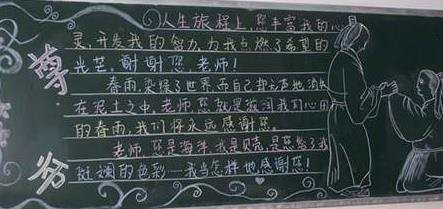 尊师
人生旅程上,您丰富我的心
灵,开发我的智力,为我点燃了希望的
光芒,谢谢您,老师!
春雨,染绿了世界,而自己却无声地消失
在泥土之中,老师,您就是滋润我们心田
的春雨,我们将永远感谢您。
老师,您是海洋,我是贝壳,是您给了我
斑斓的色彩……我当怎样地感谢您!